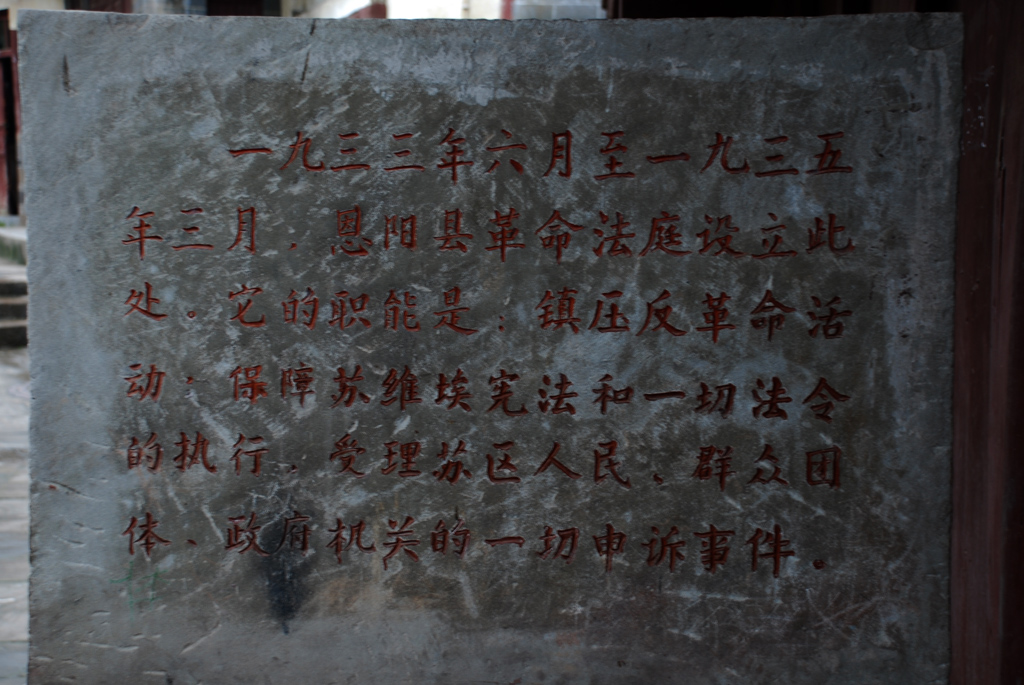 一九三三年六月至一九三五
年三月，恩阳县革命法庭设立此
处。它的职能是：镇压反革命活
动，保障苏维埃宪法和一切法令
的执行，受理苏区人民、群众团
体、政府机关的一切申诉事件。